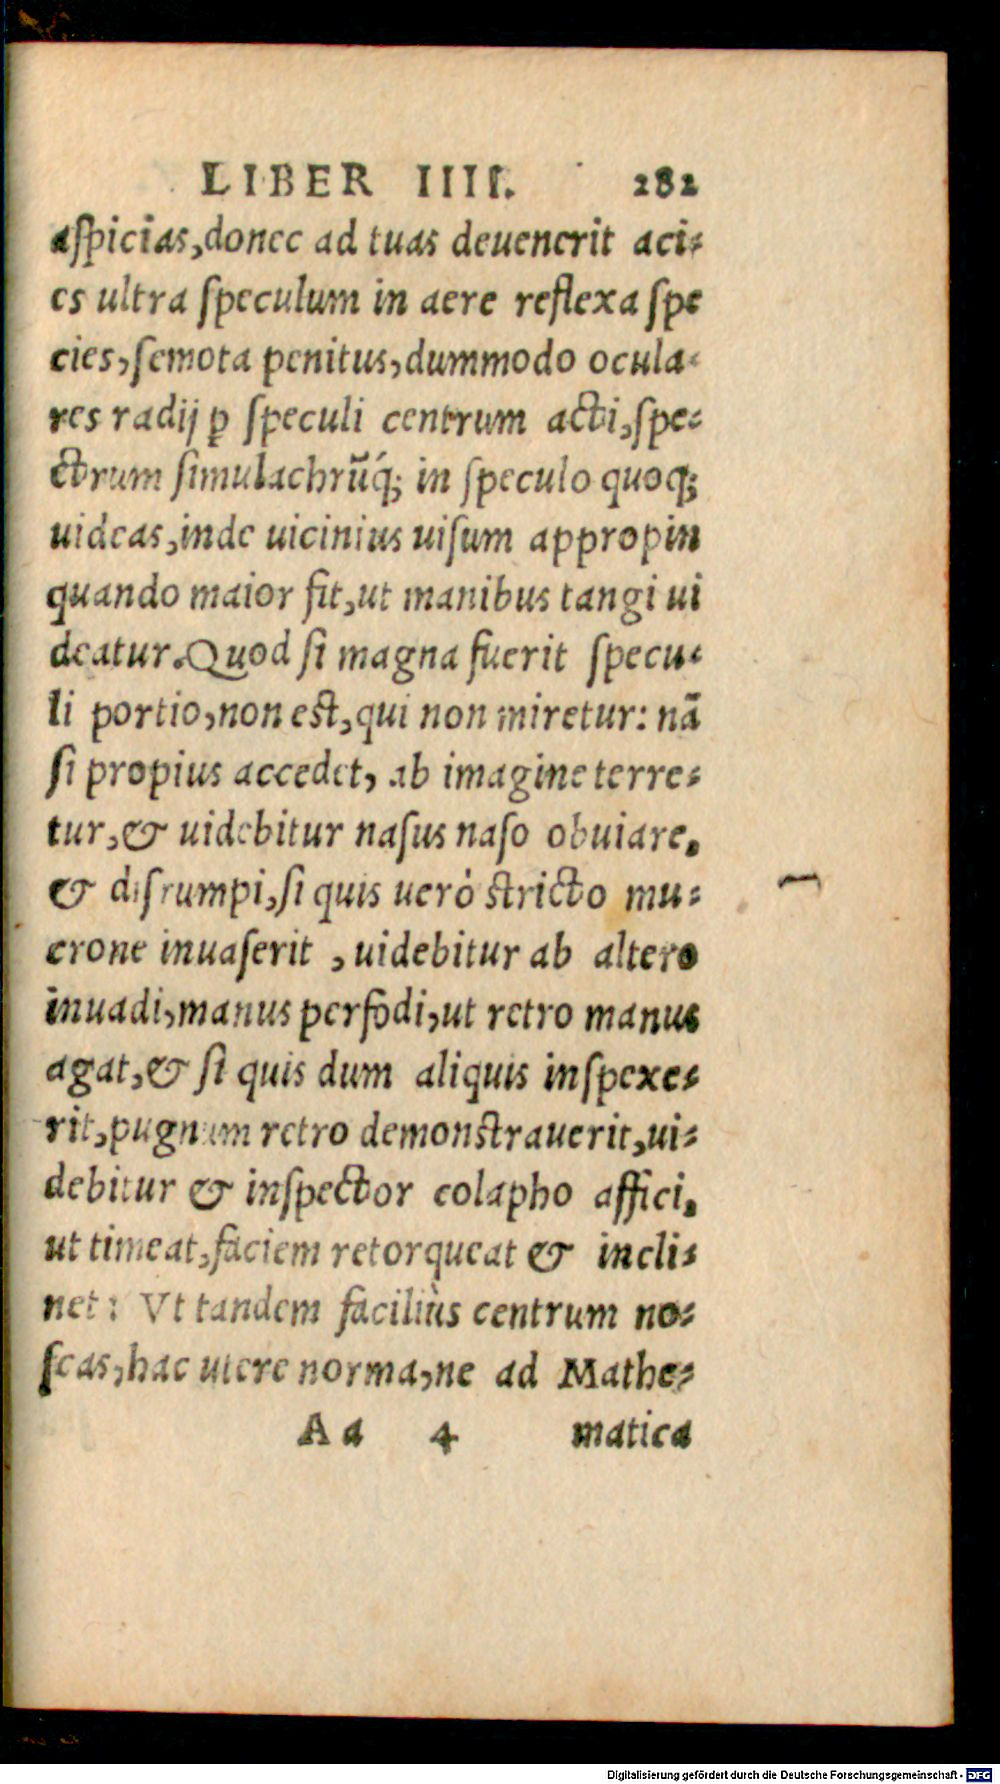 LIBER IIII. 282
aſpicias,donec ad tuas deuenerit aci⸗
es ultra ſpeculum in aere reflexa ſpe
cies,ſemota penitus,dummodo ocula⸗
res radij ꝑ ſpeculi centrum acti,ſpe⸗
ctrum ſimulachrũq́; in ſpeculo quoq;
uideas,inde uicinius uiſum appropin
quando maior fit,ut manibus tangi ui
deatur.Quod ſi magna fuerit ſpecu⸗
li portio,non est,qui non miretur: nã
ſi propius accedet, ab imagine terre⸗
tur,& uidebitur naſus naſo obuiare,
& diſrumpi,ſi quis uerò stricto mu⸗
crone inuaſerit , uidebitur ab altero
inuadi,manus perfodi,ut retro manus
agat,& ſi quis dum aliquis inſpexe⸗
rit,pugnum retro demonstrauerit,ui⸗
debitur & inſpector colapho affici,
ut timeat,faciem retorqueat & incli⸗
net: Vt tandem faciliùs centrum no⸗
ſcas,hac utere norma,ne ad Mathe⸗
Aa 4 matica
Digitalisierung gefördert durch die Deutsche Forschungsgemeinschaft - DFG